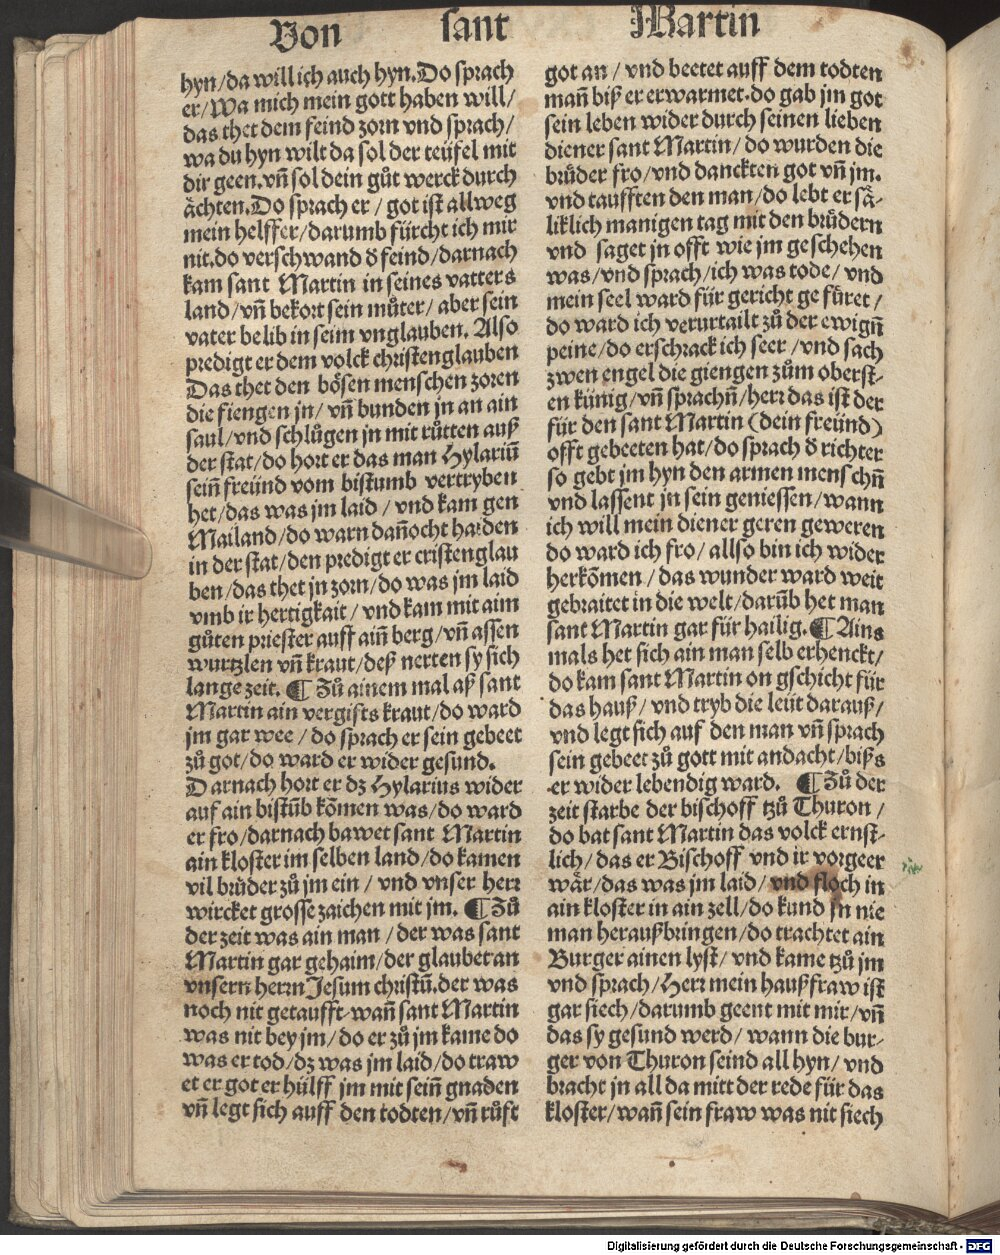 Von sant Martin
hyn/da will ich auch hyn.Do sprach
er/Wa mich mein gott haben will/
das thet dem feind zorn vnd sprach/
wa du hyn wilt da sol der teüfel mit
dir geen.vñ sol dein gůt werck durch
ächten.Do sprach er/got ist allweg
mein helffer/darumb fürcht ich mir
nit.do verschwand ð feind/darnach
kam sant Martin in seines vatters
land/vñ bekort sein můter/aber sein
vater belib in seim vnglauben. Also
predigt er dem volck christenglauben
Das thet den bösen menschen zoren
die fiengen jn/vñ bunden jn an ain
saul/vnd schlůgen jn mit růtten auß
der stat/do hort er das man Hylariũ
seiñ freünd vom bistumb vertryben
het/das was jm laid/vnd kam gen
Mailand/do warn dañocht haiden
in der stat/den predigt er cristenglau
ben/das thet jn zorn/do was jm laid
vmb ir hertigkait/vnd kam mit aim
gůten priester auff aiñ berg/vñ assen
wurtzlen vñ kraut/deß nerten sy sich
lange zeit. ¶ Zů ainem mal aß sant
Martin ain vergifts kraut/do ward
jm gar wee/do sprach er sein gebeet
zů got/do ward er wider gesund.
Darnach hort er dz Hylarius wider
auf ain bistũb kõmen was/do ward
er fro/darnach bawet sant Martin
ain kloster im selben land/do kamen
vil brüder zů jm ein/vnd vnser herr
wircket grosse zaichen mit jm. ¶ Zů
der zeit was ain man/der was sant
Martin gar gehaim/der glaubet an
vnsern herrn Jesum christũ.der was
noch nit getaufft.wañ sant Martin
was nit bey jm/do er zů jm kame do
was er tod/dz was jm laid/do traw
et er got er hülff jm mit seiñ gnaden
vñ legt sich auff den todten/vñ růft
got an/vnd beetet auff dem todten
mañ biß er erwarmet.do gab jm got
sein leben wider durch seinen lieben
diener sant Martin/do wurden die
brüder fro/vnd danckten got vñ jm.
vnd taufften den man/do lebt er sä-
liklich manigen tag mit den brüdern
vnd saget jn offt wie jm geschehen
was/vnd sprach/ich was tode/vnd
mein seel ward für gericht gefüret/
do ward ich verurtailt zů der ewigñ
peine/do erschrack ich seer/vnd sach
zwen engel die giengen zům oberst-
en künig/vñ sprachñ/herr das ist der
für den sant Martin (dein freünd)
offt gebeeten hat/do sprach ð richter
so gebt jm hyn den armen menschñ
vnd lassent jn sein geniessen/wann
ich will mein diener geren geweren
do ward ich fro/allso bin ich wider
herkõmen/das wunder ward weit
gebraitet in die welt/darũb het man
sant Martin gar für hailig. ¶ Ains
mals het sich ain man selb erhenckt/
do kam sant Martin on gschicht für
das hauß/vnd tryb die leüt darauß/
vnd legt sich auf den man vñ sprach
sein gebeet zů gott mit andacht/biß
er wider lebendig ward. ¶ Zů der
zeit starbe der bischoff tzů Thuron/
do bat sant Martin das volck ernst-
lich/das er Bischoff vnd ir vorgeer
wär/das was jm laid/vnd floch in
ain kloster in ain zell/do kund jn nie
man heraußbringen/do trachtet ain
Burger ainen lyst/vnd kame tzů jm
vnd sprach/Herr mein haußfraw ist
gar siech/darumb geent mit mir/vñ
das sy gesund werd/wann die bur-
ger von Thuron seind all hyn/vnd
bracht jn all da mitt der rede für das
kloster/wañ sein fraw was nit siech
Digitalisierung gefördert durch die Deutsche Forschungsgemeinschaft - DFG